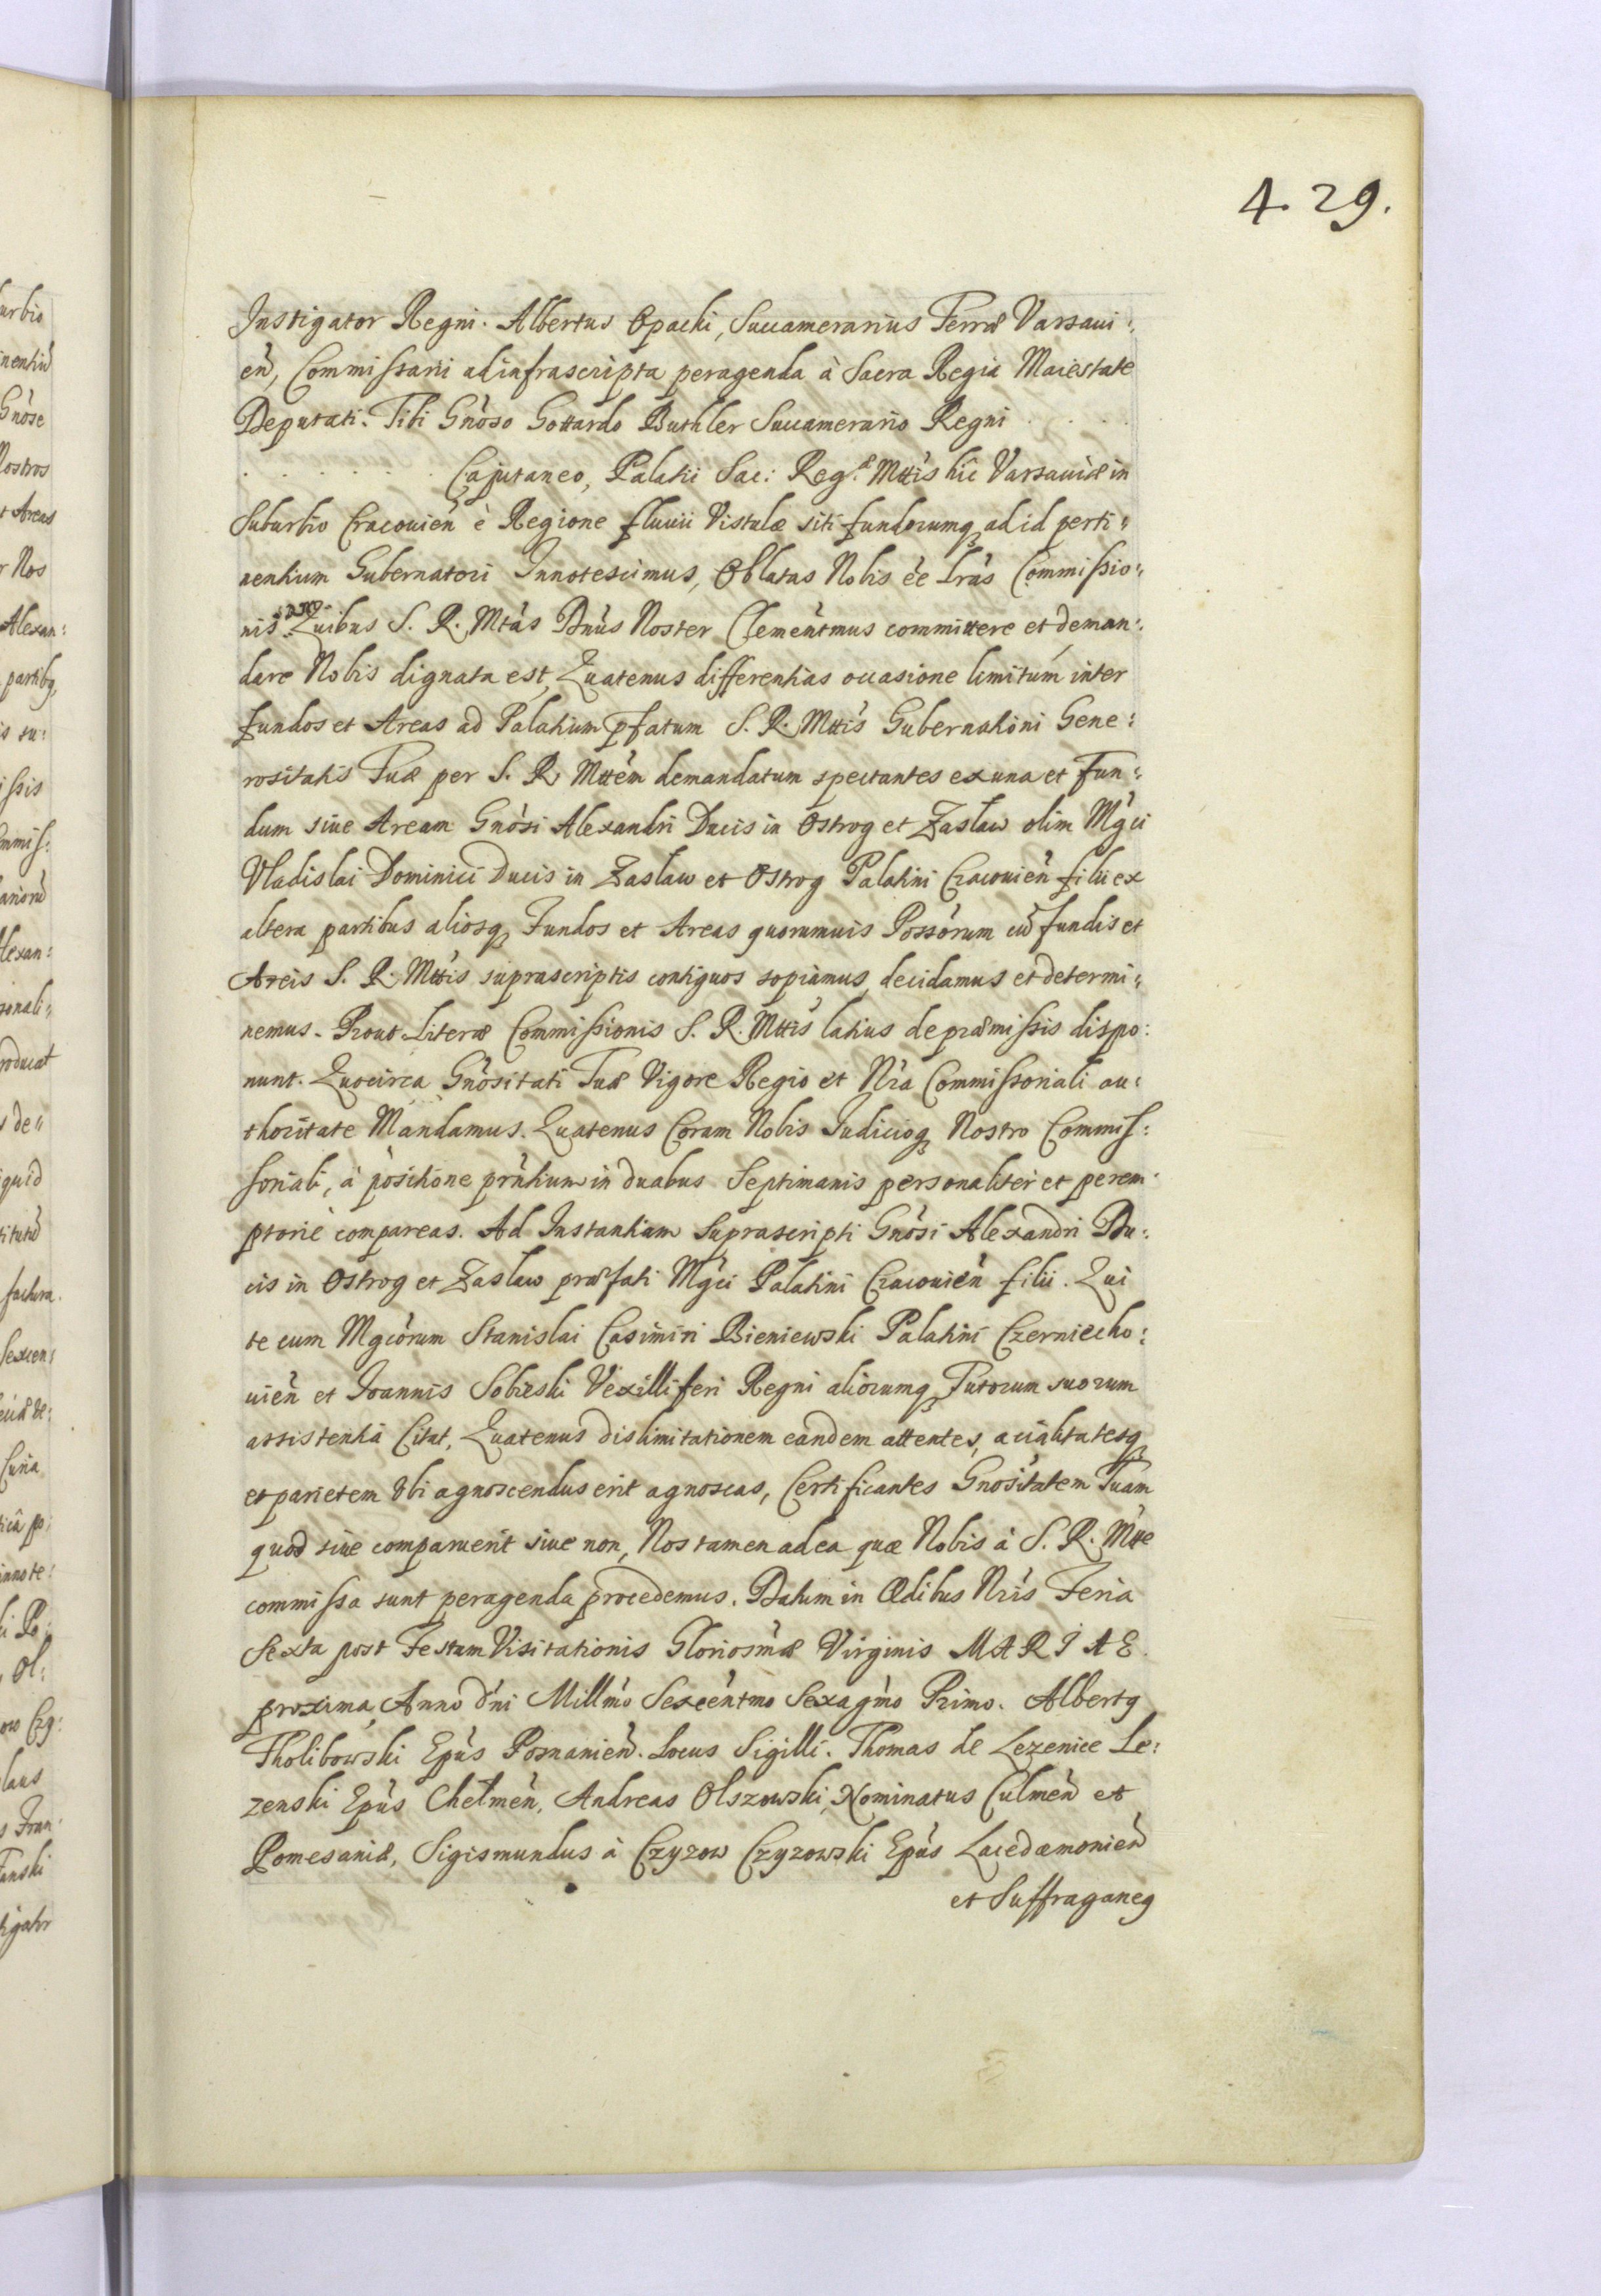 4. 29.
Instigator Regni. Albertus Opacki, Succamerarius Terræ Varsaui:
eñ, Commissarii ad infrascripta peragenda à Sacra Regia Maiestate
Deputati. Tibi Gnoso Gottardo Buthler Succamerario Regni . . . .
. . . . . Capitaneo, Palatii Sac: Reg.æ Mttis hîc Varsauiæ in
Suburbio Cracouień è Regione fluuii Vistulæ siti fundorumq ad id perti:
nentium Gubernatori Innotescimus, Oblatas Nobis ee Lras Commissio:
nis Quibus S. R. Mtas Dnus Noster Clementmus committere et deman:
dare Nobis dignata est, Quatenus differentias occasione limitum inter
fundos et Areas ad Palatium pfatum S. R. Mttis Gubernationi Gene:
rositatis Tuæ per S. R. Mttem demandatum spectantes ex una et Fun:
dum siue Aream Gnosi Alexandri Ducis in Ostrog et Zaslaw olim Mgci
Vladislai Dominici Ducis in Zaslaw et Ostrog Palatini Cracouień filii ex
altera partibus aliosq Fundos et Areas quorumuis Possorum cũ fundis et
Areis S. R. Mttis suprascriptis contiguos sopiamus, decidamus et determi:
nemus. Prout Literæ Commissionis S. R. Mttis latius de præmissis dispo:
nunt. Quocirca Gnositati Tuæ Vigore Regio et Nra Commissoriali au:
thoritate Mandamus. Quatenus Coram Nobis Iudicioq Nostro Commis:
soriali, à positione pntium in duabus Septimanis personaliter et perem:
ptorie compareas. Ad Instantiam Suprascripti Gnosi Alexandri Du:
cis in Ostrog et Zaslaw præfati Mgci Palatini Cracouień filii. Qui
te cum Mgcorum Stanislai Casimiri Bieniewski Palatini Czerniecho:
uień et Ioannis Sobieski Vexilliferi Regni aliorumq Tutorum suorum
assistentiâ Citat, Quatenus dislimitationem eandem attentes, acialitatesq
et parietem Vbi agnoscendus erit agnoscas, Certificantes Gnositatem Tuam
quod siue comparuerit siue non, Nos tamen ad ea quæ Nobis à S. R. Mtte
commissa sunt peragenda procedemus. Datum in Ædibus Nris Feria
Sexta post Festum Visitationis Gloriosmæ Virginis MARIAE
proxima, Anno Dni Millmo Sexcentmo Sexagmo Primo. Albertq
Tholibowski Epus Posnanień. Locus Sigilli. Thomas de Lezenice Le:
zenski Epus Chelmeń, Andreas Olszowski, Nominatus Culmeń et
Pomesaniæ, Sigismundus à Czyzow Czyzowski Epus Lacedæmonień
et Suffraganeq